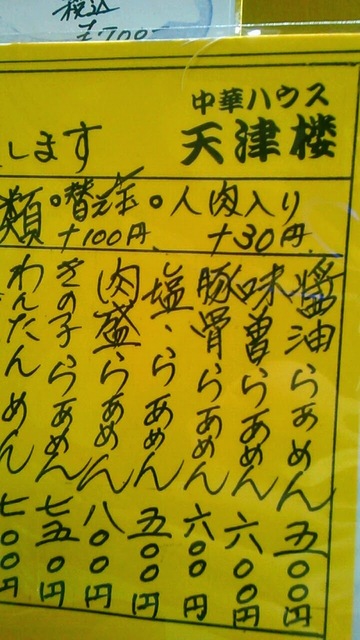 税込
¥700-
中華ハウス
天津楼
します
類・替え玉・人肉入り
+100円 +30円
醤油らぁめん 五〇〇円
味曽らぁめん 六〇〇円
豚骨らぁめん 六〇〇円
塩、らぁめん 五〇〇円
肉盛らぁめん 八〇〇円
きの子らぁめん 七五〇円
わんたんめん 七〇〇円